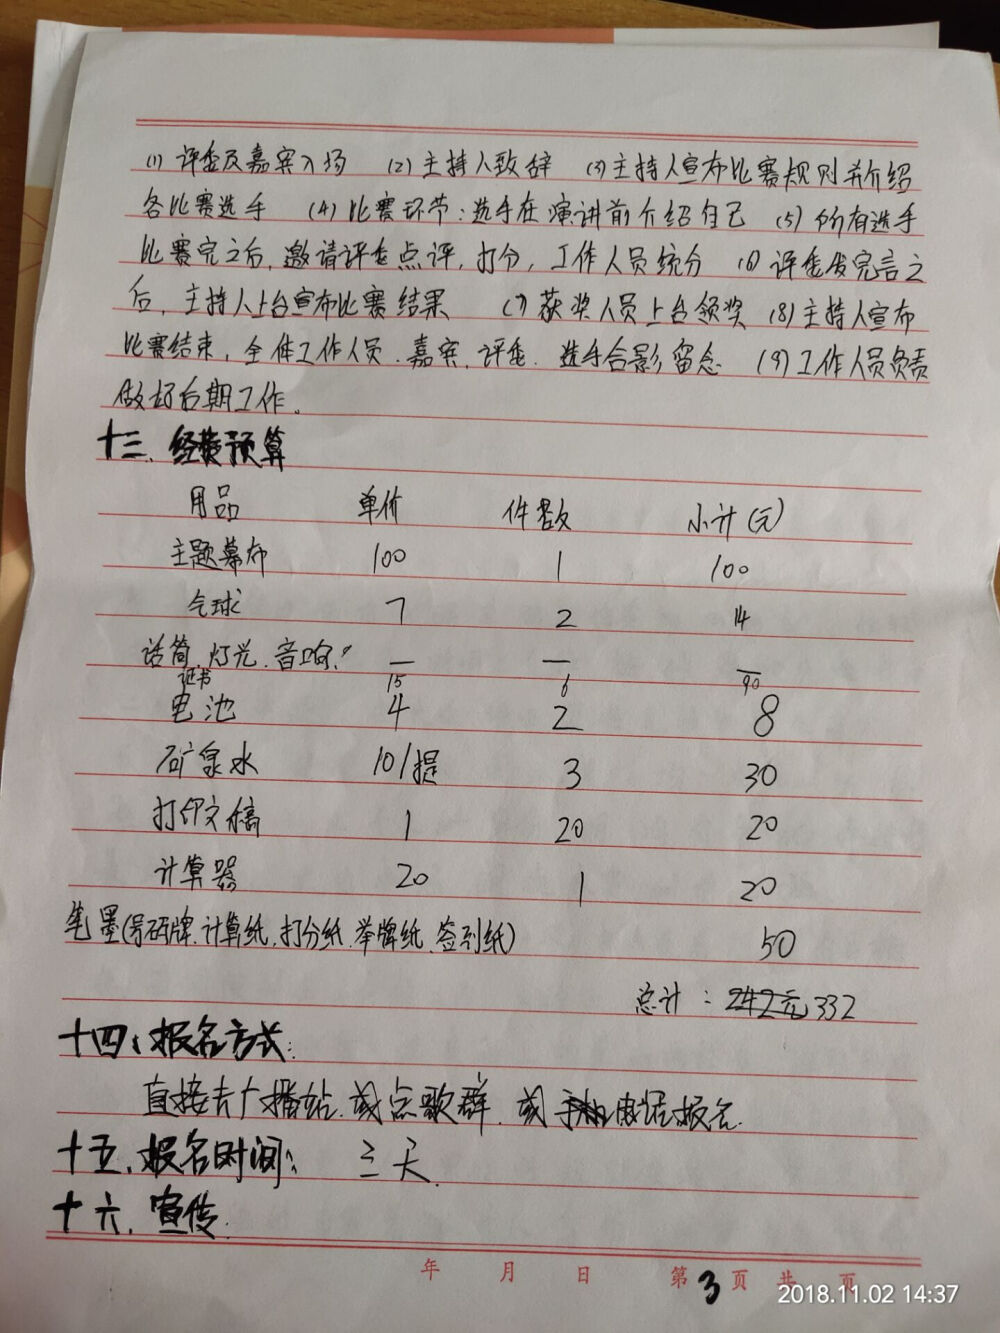 (1) 评委及嘉宾入场 (2) 主持人致辞 (3) 主持人宣布比赛规则并介绍
各比赛选手 (4) 比赛环节:选手在演讲前介绍自己 (5) 所有选手
比赛完之后,邀请评委点评,打分,工作人员统分 (6) 评委发完言之
后,主持人上台宣布比赛结果 (7) 获奖人员上台领奖 (8) 主持人宣布
比赛结束,全体工作人员、嘉宾、评委、选手合影留念 (9) 工作人员负责
做好后期工作。
十三、经费预算
用品 单价 件数 小计(元)
主题幕布 100 1 100
气球 7 2 14
话筒、灯光、音响 — — —
证书 15 6 90
电池 4 2 8
矿泉水 10/提 3 30
打印文稿 1 20 20
计算器 20 1 20
笔墨(号码牌、计算纸、打分纸、举牌纸、签到纸) 50
总计:242元 332
十四、报名方式:
直接去广播站、或点歌群、或手机电话报名.
十五、报名时间: 三天.
十六、宣传.
年 月 日 第 3 页 共 页
2018.11.02 14:37